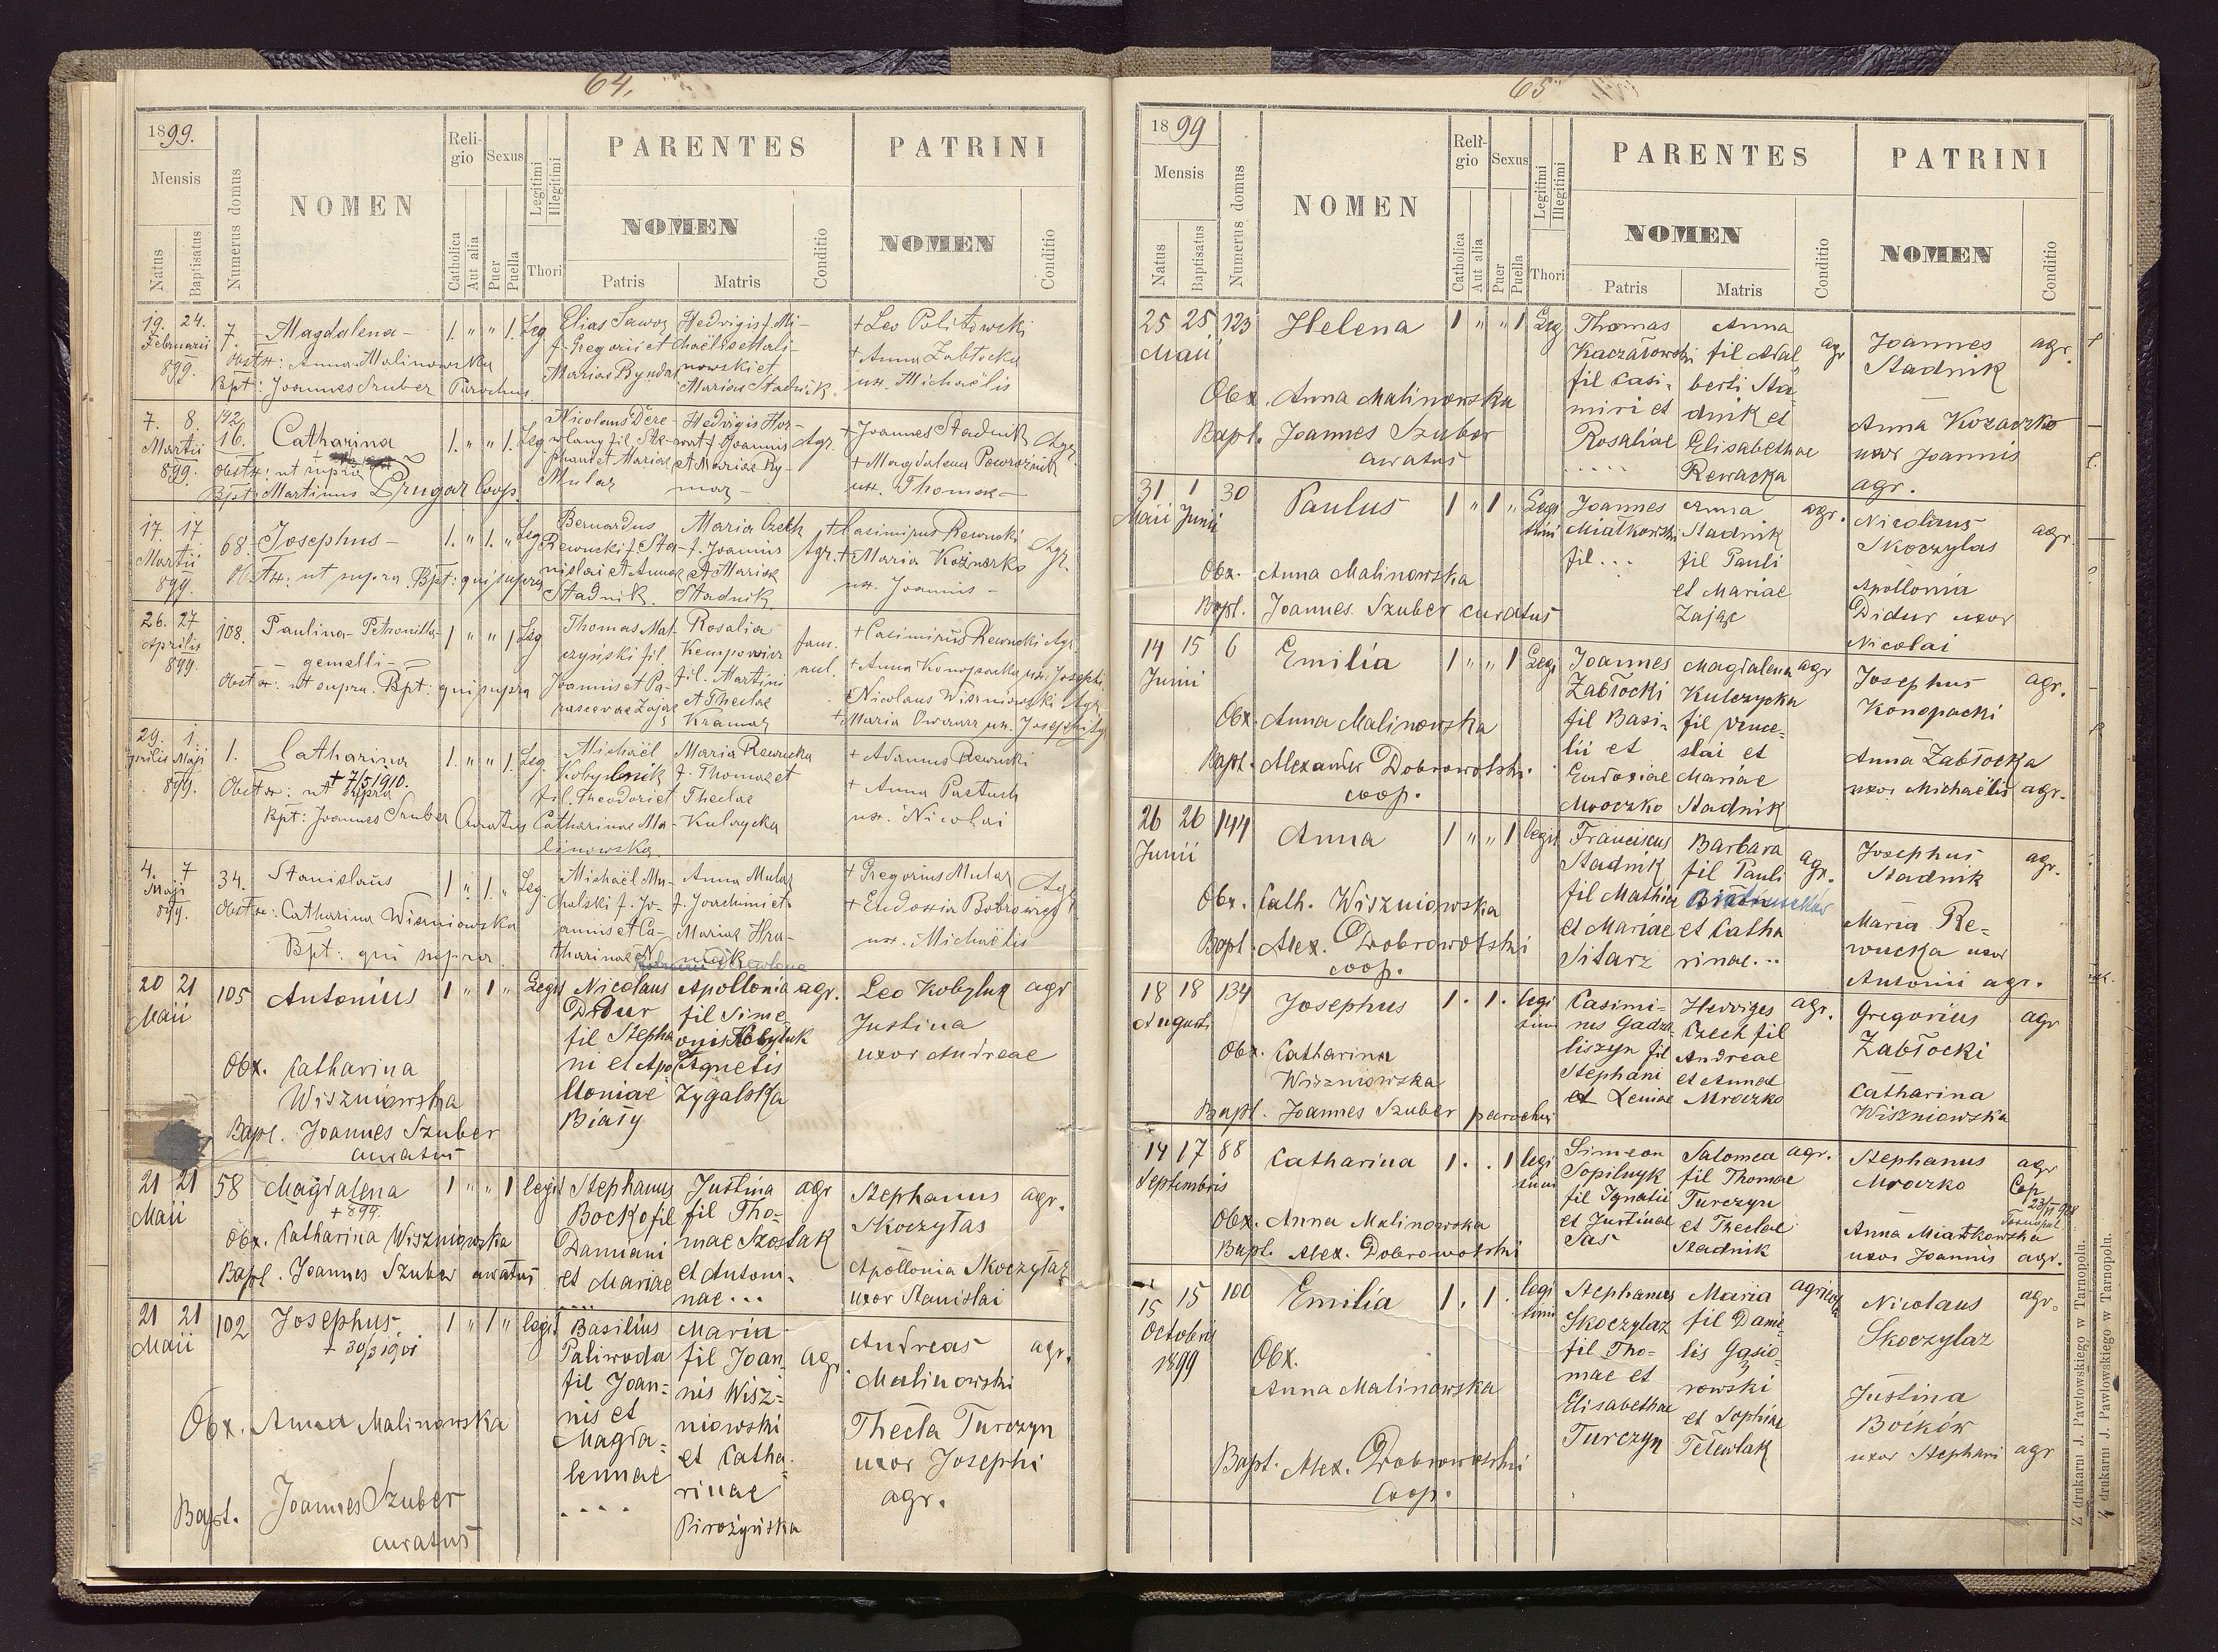 64.
1899.
Mensis
Natus
Baptisatus
Numerus domus
NOMEN
Reli-
gio
Catholica
Aut alia
Sexus
Puer
Puella
Legitimi
Illegitimi
Thori
PARENTES
NOMEN
Patris
Matris
Conditio
PATRINI
NOMEN
Conditio
19. 24.
Februarii
899.
7.
Magdalena
obstx: Anna Malinowska
Bpt: Joannes Szuber Parochus
1. " " 1. Leg
Elias Sawoz
f. Gregorii et
Mariae Byndas
Hedvigis f. Mi-
chaëlis Mali-
nowski et
Mariae Stadnik
+ Leo Politowski
+ Anna Zabłocka
ux. Michaëlis
7. 8.
Martii
899.
142
16.
Catharina
obstx: ut supra
Bpt: Martinus Prugar Coop.
1. " " 1. Leg.
Nicolaus Dere-
wlany fil. Ste-
phani et Mariae
Mular
Hedvigis Hor-
wat f. Joannis
et Mariae Ry-
mar
Agr.
+ Joannes Stadnik
+ Magdalena Powroźnik
ux. Thomae
Agr.
17. 17.
Martii
899.
68.
Josephus
Obstx: ut supra. Bpt: qui supra
1. " 1. " Leg
Bernardus
Rewucki f. Sta-
nislai et Annae
Stadnik.
Maria Czech
f. Joannis
et Mariae
Stadnik.
Agr.
+ Casimirus Rewucki
+ Maria Koźuarko
ux. Joannis
Agr.
26. 27
Aprilis
899.
108.
Paulina Petronilla
gemelli
Obstx: ut supra. Bpt: qui supra
1 " " 1 Leg
Thomas Mal-
czyński fil.
Joannis et Pa-
rascevae Zając
Rosalia
Kempowicz
fil. Martini
et Theclae
Kramar
fam.
aul.
+ Casimirus Rewucki Agr.
+ Anna Konopacka ux. Josephi
+ Nicolaus Wiszniowski Agr.
+ Maria Owczarz ux. Josephi Agr
29. 1.
Aprilis Maji
899.
1.
Catharina
+ 7/5 1910.
Obstx: ut supra
Bpt: Joannes Szuber Curatus
1. " " 1. Leg.
Michaël
Kobylnik
fil. Theodori et
Catharinae Ma-
linowska.
Maria Rewucka
f. Thomae et
Theclae
Kulczycka
+ Adamus Rewucki
+ Anna Pastuch
ux. Nicolai
4. 7
Maji
899.
34.
Stanislaus
Obstx: Catharina Wiszniowska
Bpt: qui supra.
1 " 1. " Leg
Michaël Mu-
chalski f. Jo-
annis et Ca-
tharinae
Anna Mular
f. Joachimi et
Mariae Hra-
+ Gregorius Mular
+ Eudoxia Bobrowicz
ux. Michaëlis
Agr
20 21
Maii
105
Antonius
Obx. Catharina
Wiszniowska
Bapt. Joannes Szuber
curatus
1 " 1 " Legit
Nicolaus
Didur
fil Stepha
ni et Apo
lloniae
Biały
Apollonia
fil Sime
onis Kobyluk
et Agnetis
Zygalska
agr.
Leo Kobyluk
Justina
uxor Andreae
agr
21 21
Maii
58
Magdalena
+ 899.
Obx. Catharina Wiszniowska
Bapt. Joannes Szuber curatus
1 " " 1 legit
Stephanus
Bocko fil
Damiani
et Mariae
....
Justina
fil Tho-
mae Szostak
et Anton-
nae ...
agr
Stephanus
Skoczylas
Apollonia Skoczylaz
uxor Stanislai
agr.
21 21
Maii
102
Josephus
+ 30/3 1901
Obx. Anna Malinowska
Bapt. Joannes Szuber
curatus
1 " 1 " legit
Basilius
Paliwoda
fil Joan=
nis et
Magda=
lennae
....
Maria
fil Joan
nis Wisz=
niowski
et Catha=
rinae
Pirożyńska
agr
Andreas
Malinowski
Thecla Turczyn
uxor Josephi
agr.
agr.
65
1899
Mensis
Natus
Baptisatus
Numerus domus
NOMEN
Reli-
gio
Catholica
Aut alia
Sexus
Puer
Puella
Legitimi
Illegitimi
Thori
PARENTES
NOMEN
Patris
Matris
Conditio
PATRINI
NOMEN
Conditio
25 25
Maii
123
Helena
Obx. Anna Malinowska
Bapt. Joannes Szuber
curatus
1 " " 1 Leg
Thomas
Kaczarowski
fil Casi-
miri et
Rosaliae
.....
Anna
fil Adal
berti Sta-
dnik et
Elisabethae
Rewacka
agr
Joannes
Stadnik
Anna Kozaczko
uxor Joannis
agr.
agr.
31 1
Maii Junii
30
Paulus
Obx. Anna Malinowska
Bapt. Joannes Szuber curatus
1 " 1 " Legi
timi
Joannes
Miałkowski
fil...
Anna
Stadnik
fil Pauli
et Mariae
Zając
agr.
Nicolaus
Skoczylas
Apollonia
Didur uxor
Nicolai
agr
14 15
Junii
6
Emilia
Obx. Anna Malinowska
Bapt. Alexander Dobrowolski
coop.
1 " " 1 Legi
Joannes
Zabłocki
fil Basi-
lii et
Eudoxiae
Mroczko
Magdalena
Kulczycka
fil Vence-
slai et
Mariae
Stadnik
agr
Josephus
Konopacki
Anna Zabłocka
uxor Michaelis agr.
agr.
26 26
Junii
144
Anna
Obx. Cath. Wiszniowska
Bapt. Alex. Dobrowolski
coop.
1 " " 1 legit
Franciscus
Stadnik
fil Mathia
et Mariae
Sitarz
Barbara
fil Pauli
et Catha
rinae...
agr.
Josephus
Stadnik
Maria Re-
wucka uxor
Antonii agr.
agr.
18 18
Augusti
134
Josephus
Obx. Catharina
Wiszniowska
Bapt. Joannes Szuber parochus
1. 1. legi
timi
Casimi-
rus Gadza
liszyn fil
Stephani
et Xeniae
Hedviges
Czech fil
Andreae
et Annae
Mroczko
agr.
Gregorius
Zabłocki
Catharina
Wiszniowska
agr
14 17
Septembris
88
Catharina
Obx. Anna Malinowska
Bapt. Alex. Dobrowolski
1. . 1 legi
timi
Simeon
Sopilnyk
fil Ignatii
et Justinae
Sas
Salomea
fil Thomae
Turczyn
et Theclae
Stadnik
agr.
Stephanus
Mroczko
Anna Miałkowska
uxor Joannis agr.
agr
Cop
Tarnopol
15 15
Octobris
1899
100
Emilia
Obx.
Anna Malinowska
Bapt. Alex. Dobrowolski
Coop.
1. 1. legi
timi
Stephanus
Skoczylaz
fil Tho-
mae et
Elisabethae
Turczyn
Maria
fil Danie
lis Gąsio-
rowski
et Sophiae
Telewlak
agricola
Nicolaus
Skoczylaz
Justina
Boików
uxor Stephani agr
agr.
Z drukarni J. Pawłowskiego w Tarnopolu.
Z drukarni J. Pawłowskiego w Tarnopolu.